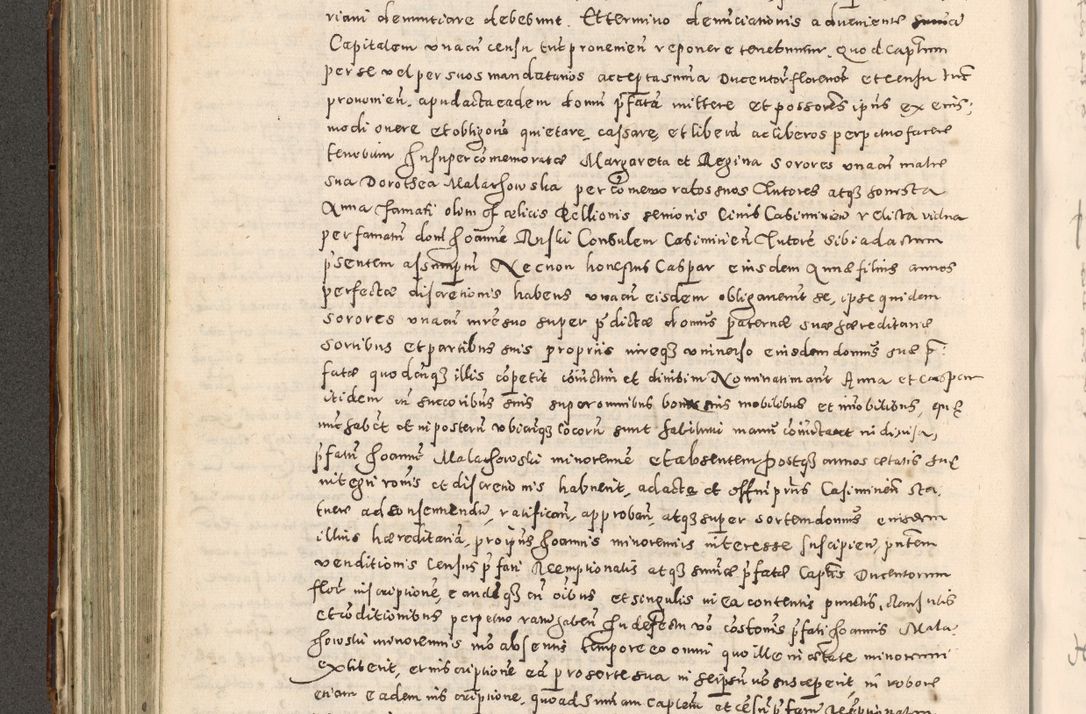 riani denuntiare debebunt. Et termino denunciationis adveniente
Capitalem vnacum censu tunc provenien reponere tenebuntur. Quod Captlum
per se vel per suos mandatarios accepta summa Ducentor florenor et censu tunc
provenien. apud acta eadem domum pfatam mittere et possores ipius ex eius
modi onere et obligone quietare, cassare, et liberam ac liberos perpetuo facere
tenebitur Insuper comemoratae Margareta et Regina sorores vnacum matre
sua Dorothea Malachowska per comemoratos suos Tutores atq honesta
Anna famati olim foelicis Rellionis senionis Civis Casimirien relicta vidua
per famatum dom Joannem Ruski Consulem Casimirien Tutore sibi ad actum
psentem assumptum Necnon honestus Caspar eiusdem Annae filius annos
perfectae discretionis habens vnacum eisdem obligauerunt se, ipse quidem
sorores vnacum mre suo super pdictae domus paternae suae haereditariae
sortibus et partibus suis propriis iureq vniuerso eiusdem domus suae p
fatae quodcunq illis competit coniunctim et diuisim Nominatim aut Anna et Caspar
itidem cum successoribus suis super omnibus bonis suis mobilibus et immobilibus, quae
nunc habent et in posterum vbicunq locorum sunt habituri manu coniuncta et indiuisa,
pfatum Joannem Malachowski minorenne et absentem postq annos aetatis suae
integri ronis et discretionis habuerit, ad acta et offm pntis Casimirien sta
tuere ad consentiendum, ratifican, approban, atq super sortem domus eiusdem
illius haereditariam, pro ipius Joannis minorennis interesse suscipien, pntem
venditionis Census pfati Reemptionalis atq summae pfatae Captlis Ducentorum
flor inscriptione, eandeq cum oibus et singulis in ea contentis punctis, clausulis
et conditionibus perpetuo ratum habent In defectu vo consensus pfati Joannis Mala
howski minorennis imo absentis tempore eo omni quo ille in aetate minorenni
extiterit, eam inscriptione ea pro sorte sua in seipsum vo susceperit in robore
etiam eadem inscriptione, quoad summam Captlem et censum pfatum Reemptionalem